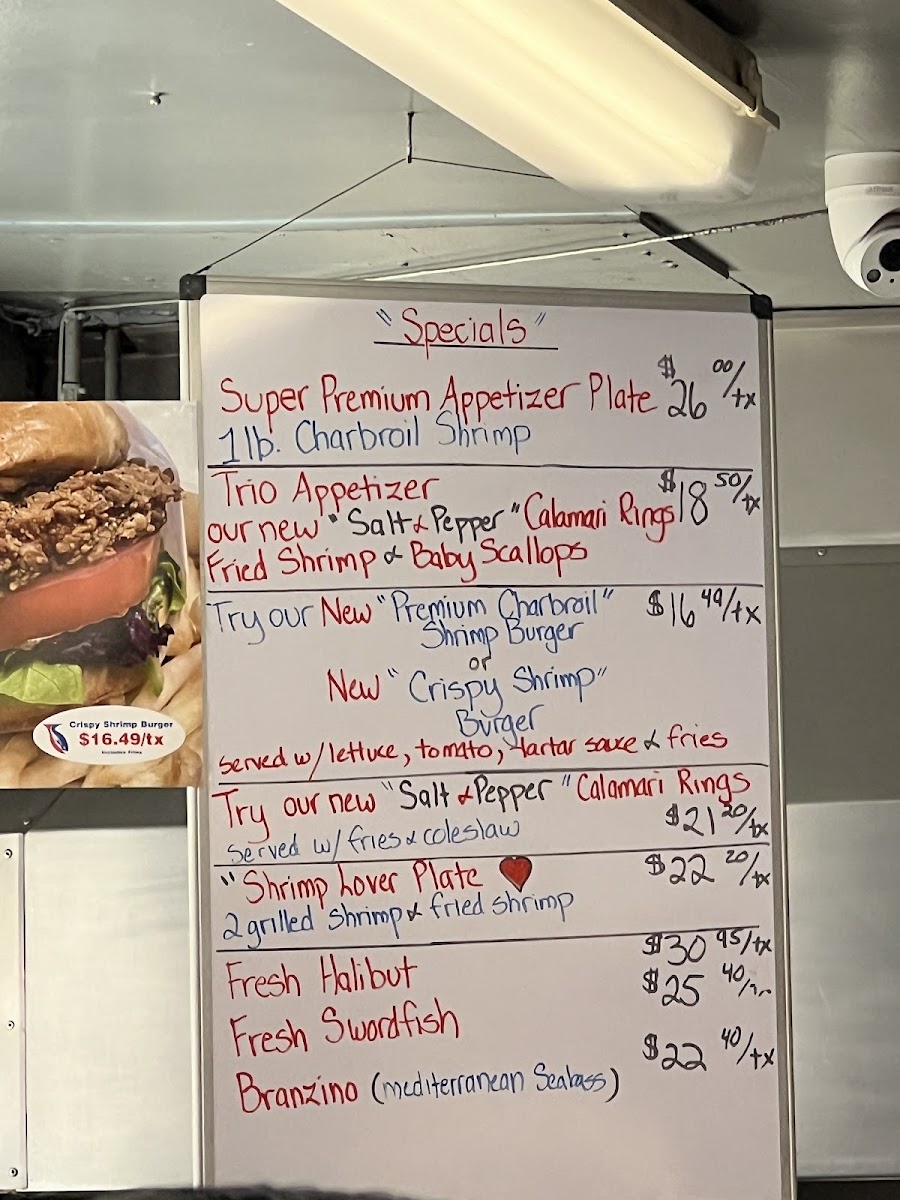 "Specials"
Super Premium Appetizer Plate $26 00/tx
1 lb. Charbroil Shrimp
Trio Appetizer $18 50/tx
our new "Salt & Pepper" Calamari Rings
Fried Shrimp & Baby Scallops
Try our New "Premium Charbroil" $16 49/tx
Shrimp Burger
or
New "Crispy Shrimp"
Burger
served w/ lettuce, tomato, tartar sauce & fries
Try our new "Salt & Pepper" Calamari Rings
Served w/ fries & coleslaw $21 20/tx
"Shrimp Lover Plate ♥ $22 20/tx
2 grilled shrimp & fried shrimp
Fresh Halibut $30 95/tx
Fresh Swordfish $25 40/
Branzino (mediterranean Seabass) $22 40/tx
Crispy Shrimp Burger
$16.49/tx
Includes Fries